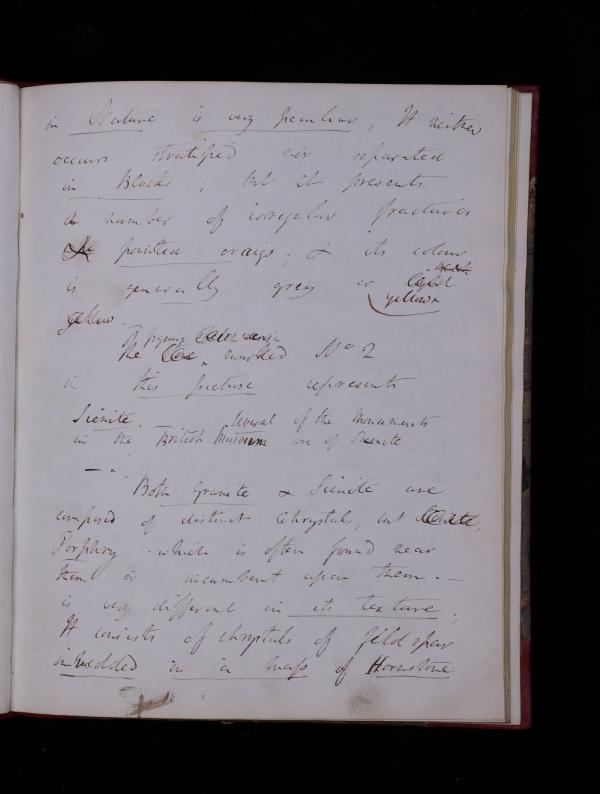 in Nature is very peculiar, It neither
occurs stratified nor separated
in Blocks; but it presents
a number of irregular fractures
or pointed craigs; & its colour
is generally grey or light
yellow
yellow.
The
the marked No 2
in this picture represents
Sienite. — Several of the Monuments
in the British Museum are of Sienite
—
Both Granite & Sienite are
composed of distinct Chrystals, but
Porphyry which is often found near
them or incumbent upon them. —
is very different in its texture;
It consists of chrystals of feldspar
imbedded in a mass of Hornstone